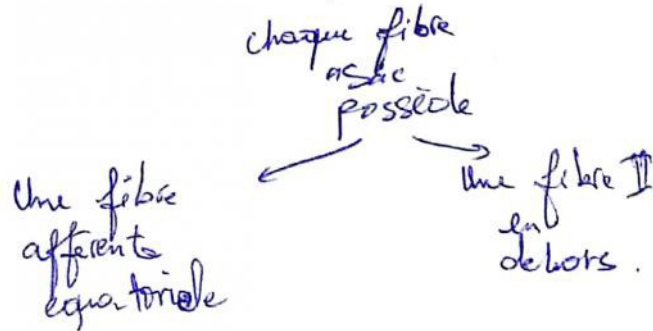 chaque fibre
à sac
possède
Une fibre
afférente
équatoriale
Une fibre II
en
dehors.